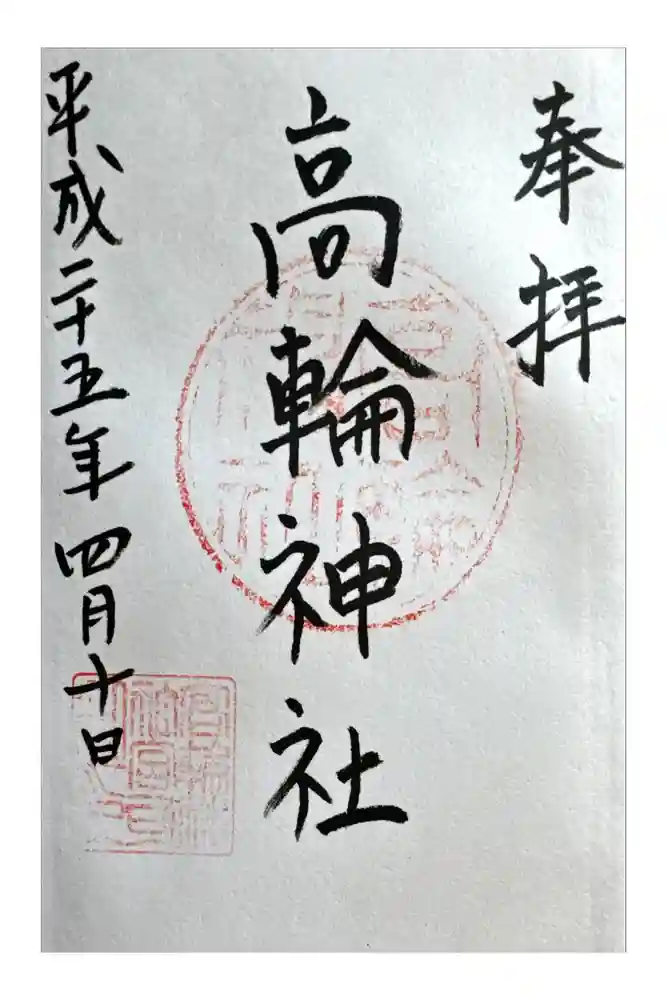 奉拝
高輪神社
平成二十五年四月十日